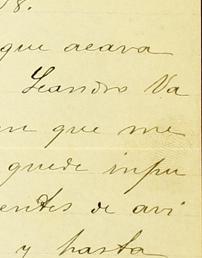 8.
que acava
Leandro Va
en que me
quede inpu
entes de avi
y hasta